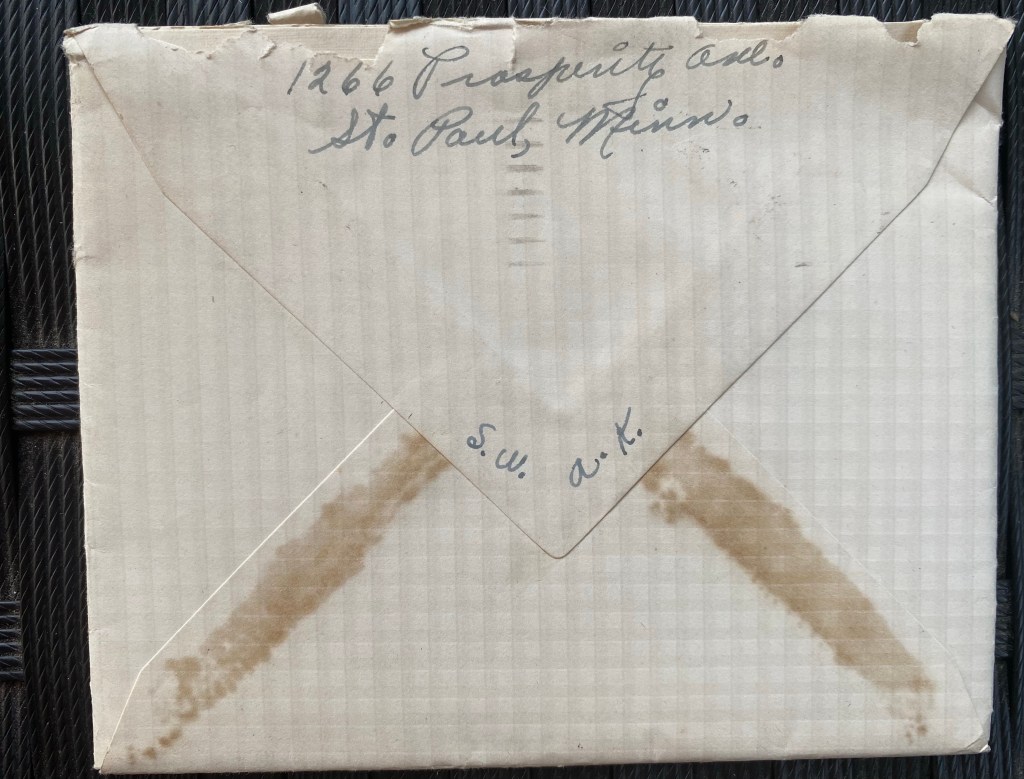 1266 Prosperity Ave.
St. Paul, Minn.
S.W. a.K.